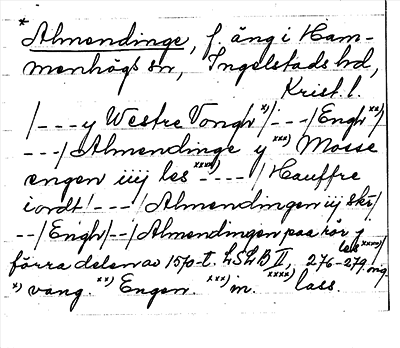 * Almendinge, f. äng i Ham-
menhögs sn, Ingelstads hd,
Krist. l.
/ - - - y Westre Vongh x)/ - - - / Engh xx)/
- - - / Almendinge y xxx) Mosse
engen iiij les xxxx) - - - / Hauffre
iordt / - - - / Almendingen iij skr/
- - / Engh / - - / Almendingen paa rör y
les xxxx)/
förra delen av 1570-t. LSLB II, 276-279. orig.
x) vang. xx) Engen. xxx) in. xxxx) lass.